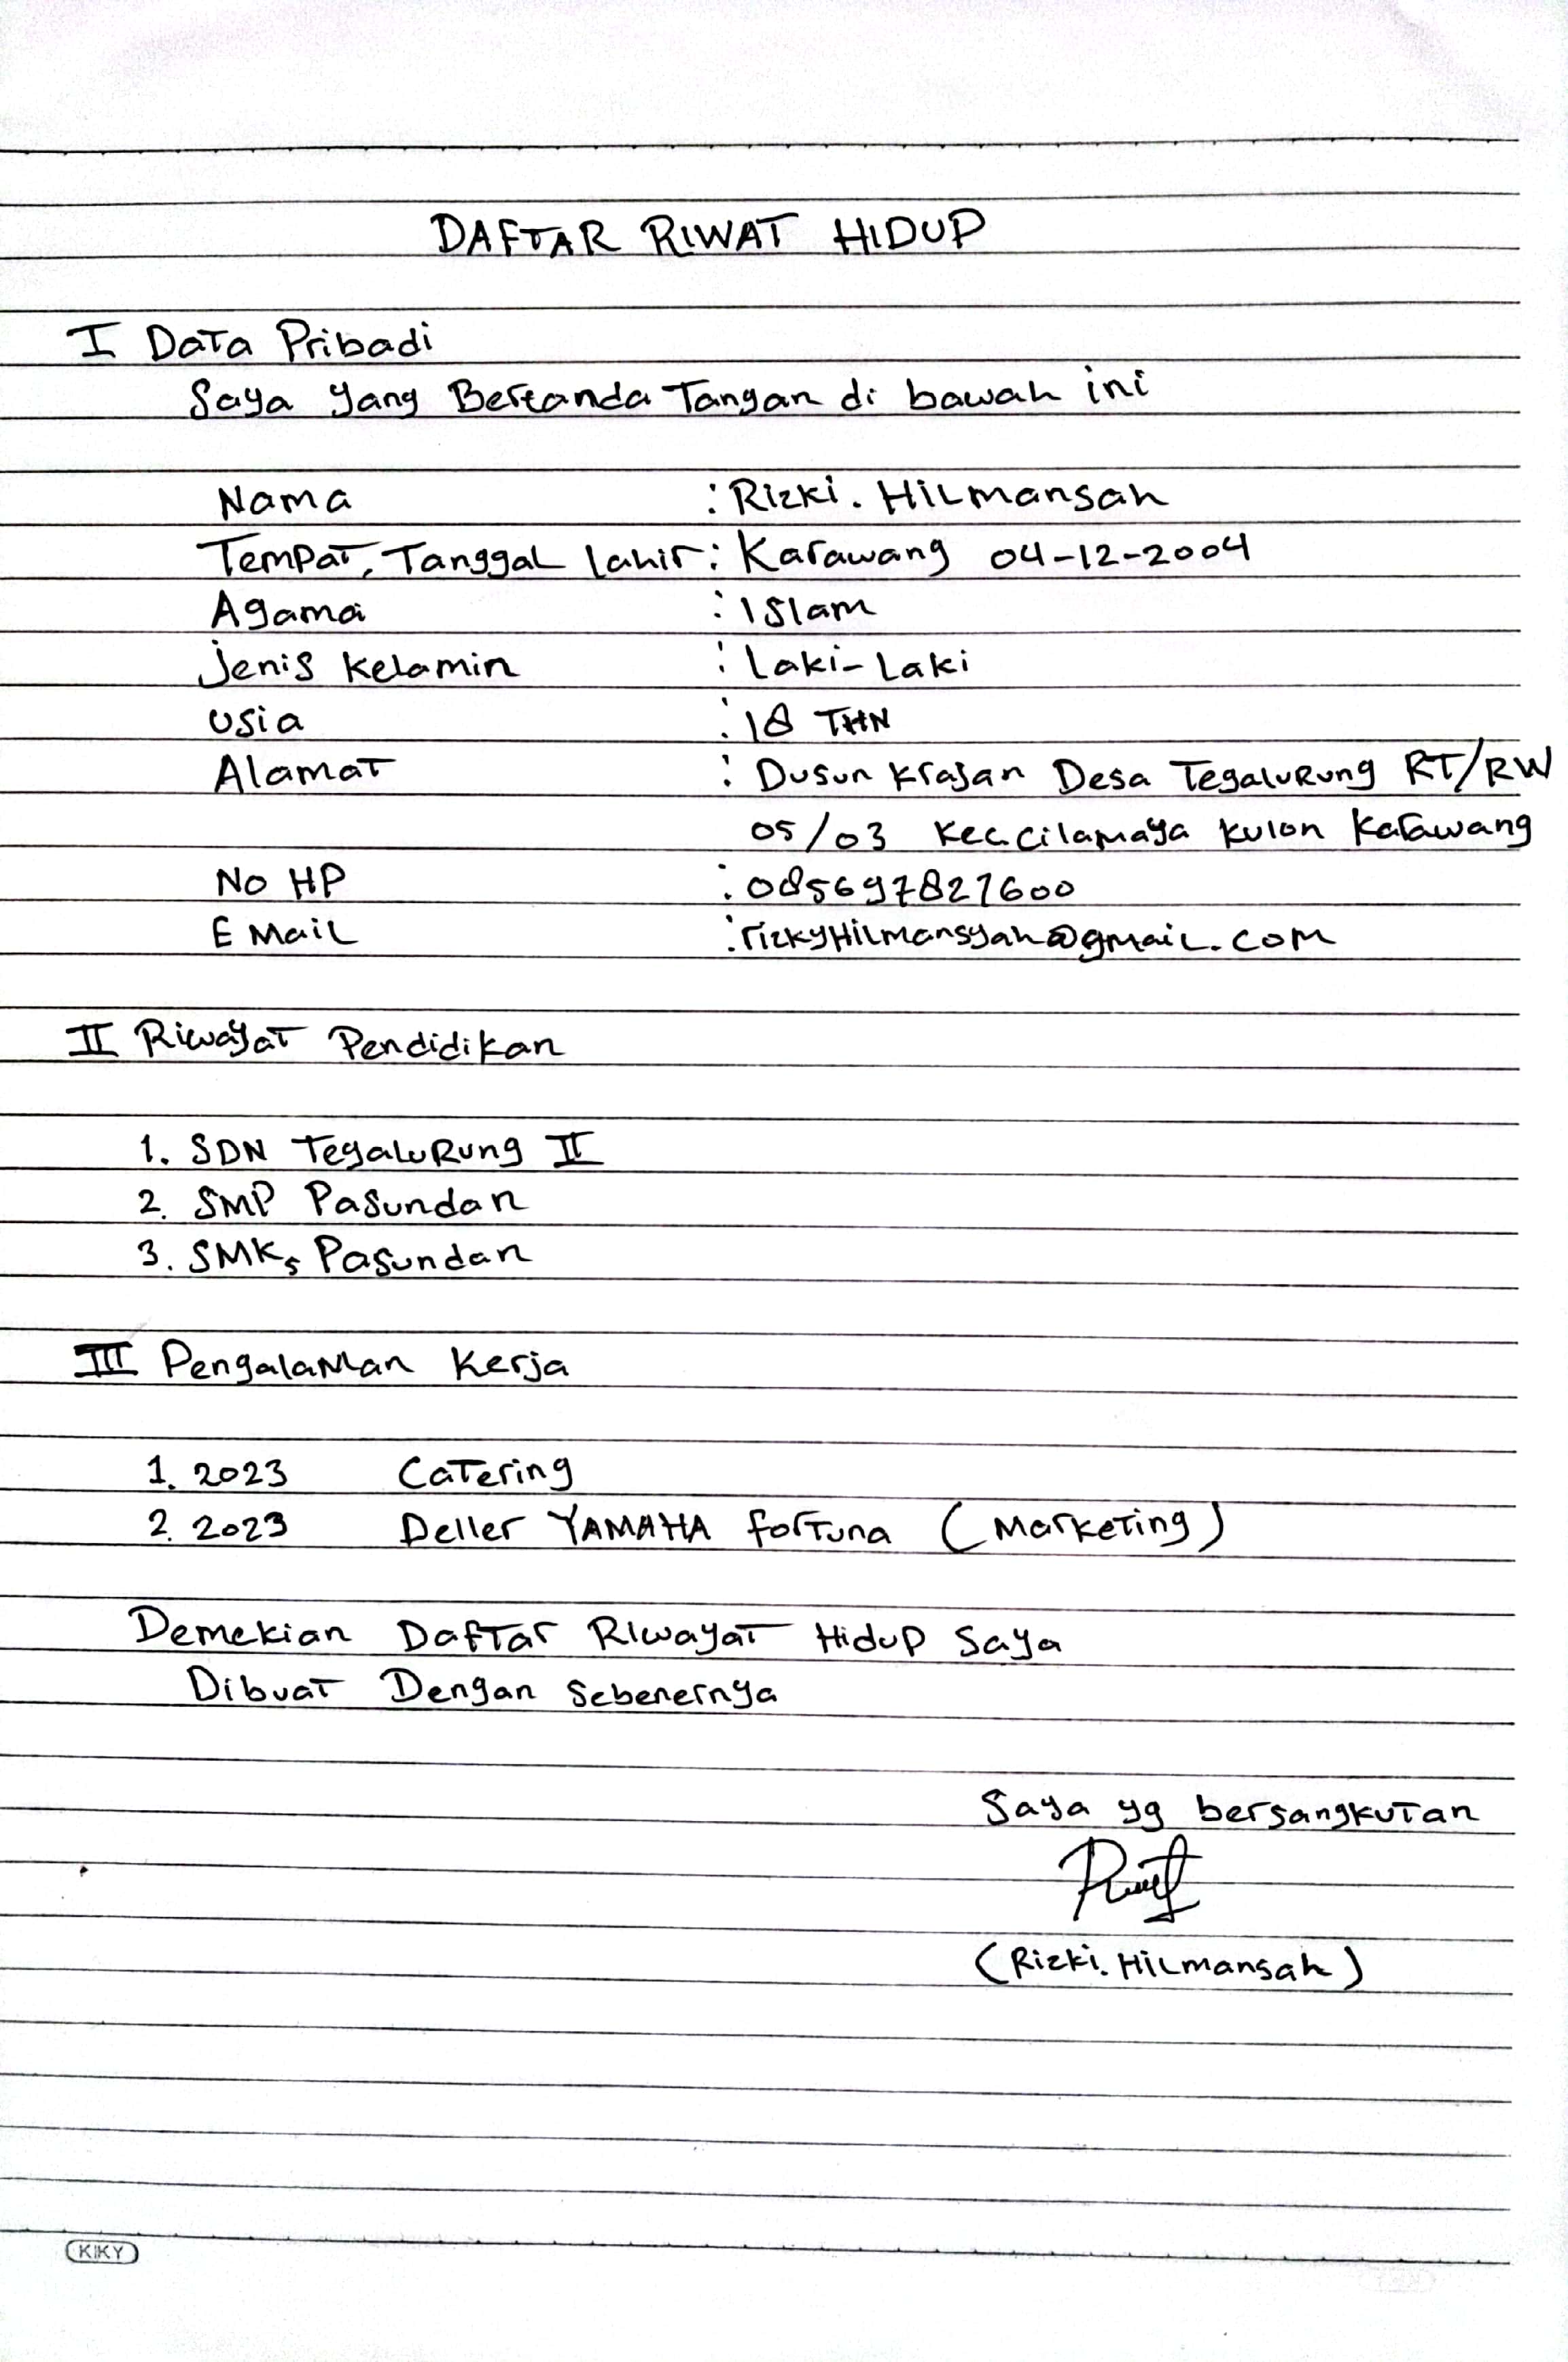 DAFTAR RIWAT HIDUP
I Data Pribadi
Saya yang Bertanda Tangan di bawah ini
Nama : Rizki. Hilmansah
Tempat, Tanggal Lahir : Karawang 04-12-2004
Agama : Islam
Jenis Kelamin : Laki-Laki
Usia : 18 THN
Alamat : Dusun Krajan Desa Tegalurung RT/RW
05/03 Kec.Cilamaya Kulon Karawang
No HP : 085697827600
E Mail : rizkyHilmansyah@gmail.com
II Riwayat Pendidikan
1. SDN Tegalurung II
2. SMP Pasundan
3. SMKs Pasundan
III Pengalaman Kerja
1. 2023 Catering
2. 2023 Deller YAMAHA fortuna (Marketing)
Demekian Daftar Riwayat Hidup Saya
Dibuat Dengan Sebenernya
Saya yg bersangkutan
(Rizki. Hilmansah)
KIKY